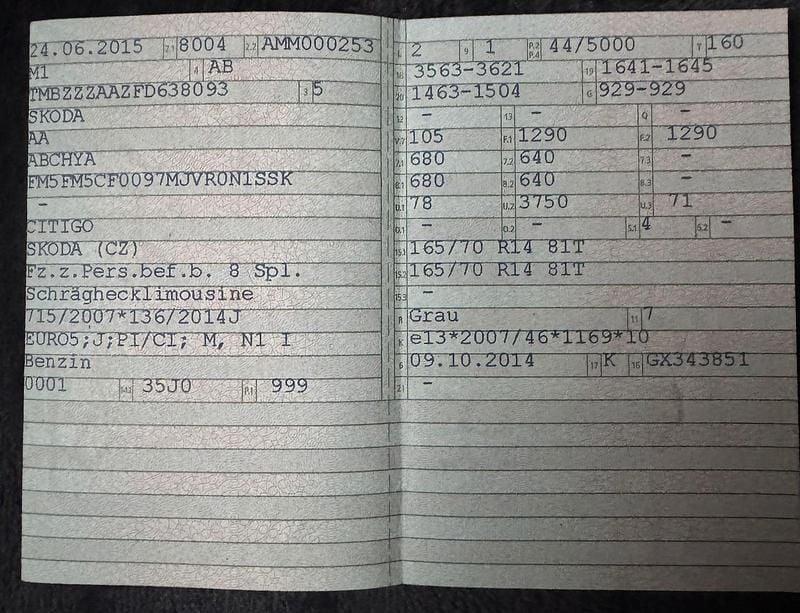 24.06.2015 2.1 8004 2.2 AMM000253
M1 4 AB
TMBZZZAAZFD638093 3 5
SKODA
AA
ABCHYA
FM5FM5CF0097MJVR0N1SSK
-
CITIGO
SKODA (CZ)
Fz.z.Pers.bef.b. 8 Spl.
Schräghecklimousine
715/2007*136/2014J
EURO5;J;PI/CI; M, N1 I
Benzin
0001 35J0 P.1 999
L 2 9 1 P.2 P.4 44/5000 T 160
18 3563-3621 19 1641-1645
20 1463-1504 G 929-929
12 - 13 - Q -
V.7 105 F.1 1290 F.2 1290
7.1 680 7.2 640 7.3 -
8.1 680 8.2 640 8.3 -
U.1 78 U.2 3750 U.3 71
O.1 - O.2 - S.1 4 S.2 -
15.1 165/70 R14 81T
15.2 165/70 R14 81T
15.3 -
R Grau 11 7
K e13*2007/46*1169*10
6 09.10.2014 17 K 16 GX343851
21 -